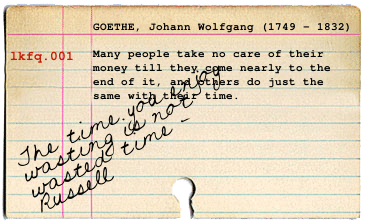 GOETHE, Johann Wolfgang (1749 – 1832)
lkfq.001
Many people take no care of their
money till they come nearly to the
end of it, and others do just the
same with their time.
The time you enjoy
wasting is not
wasted time –
Russell